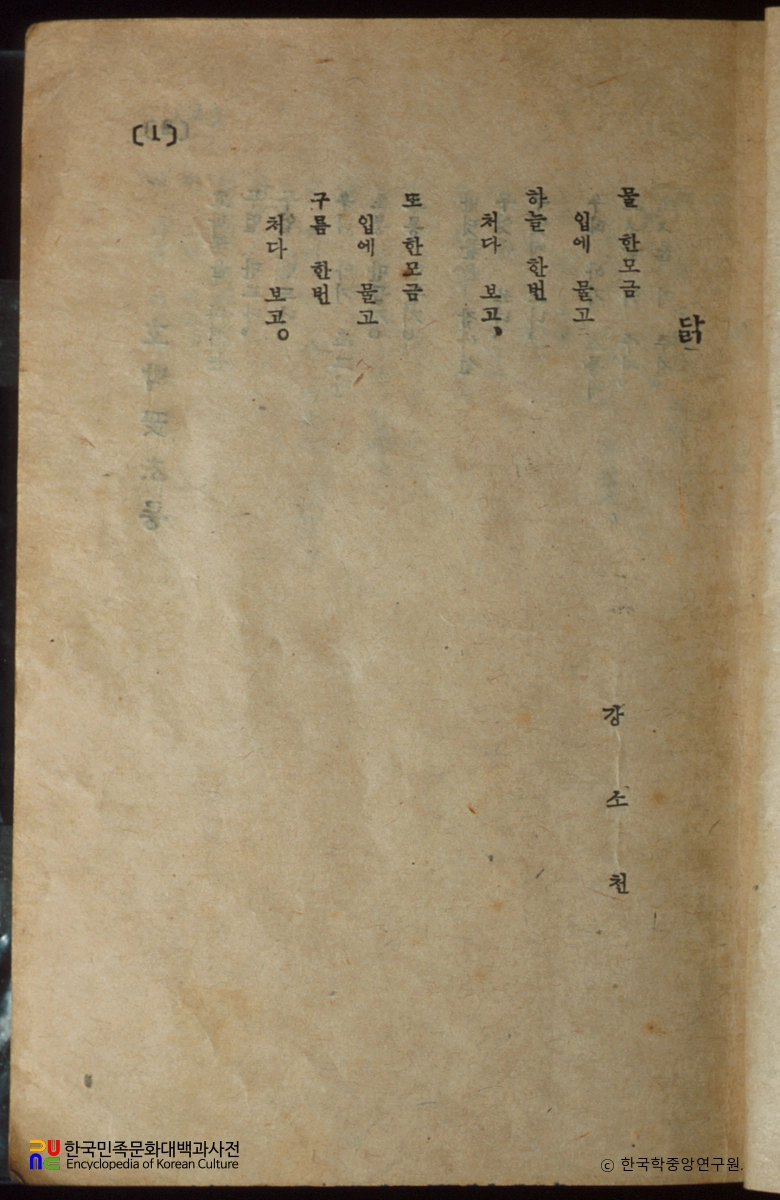 닭
강소천
물 한모금
입에 물고
하늘 한번
처다 보고,
또 한모금
입에 물고
구름 한번
처다 보고。
(1)
한국민족문화대백과사전
Encyclopedia of Korean Culture
ⓒ 한국학중앙연구원.